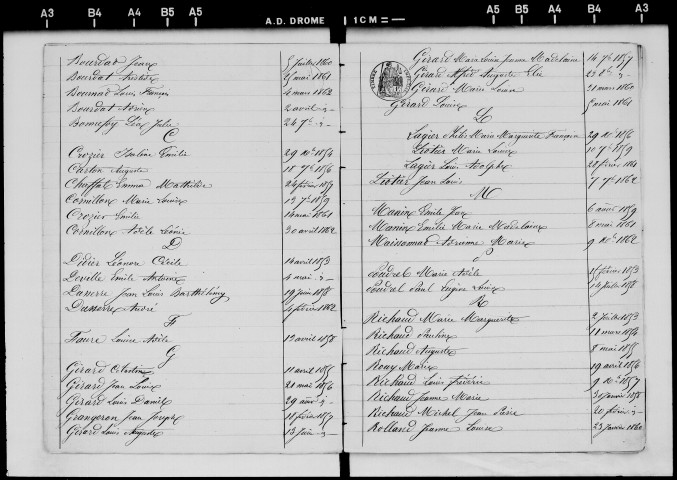 A3 B4 A4 B5 A5 A.D. DROME 1 CM A5 B5 A4 B4 A3
Bourdat Jeanx 5 Juillet 1860
Bourdat 5 mai 1861
Bournat Louis François 4 mars 1862
Bourdat 2 avril
24 7e
C
Crozier Emilie 29 Xe 1854
Auguste 18 7e 1856
Chaffal Emma Mathilde 24 février 1857
Cornillon Marie Louise 13 7e 1859
Crozier Emilie 14 mai 1861
Cornillon Adèle Léonie 30 avril 1862
D
Didier Léonore Cécile 14 avril 1853
Deville Emile Antoine 4 mai
Jean Louis Barthélémy 19 Juin 1858
André 4 février 1862
F
Faure Louise Adèle 13 avril 1858
G
Girard Célestine 11 avril 1855
Girard Jean Louis 21 mai 1856
Girard Louis Daniel 29 août
Grangeron Jean Joseph 18 février 1857
Girard Louis Auguste 13 Juin
Girard Marie Louise Jeanne Madelaine 14 7e 1857
Girard Alfred Auguste Elie 23 8e
Girard Marie Louise 31 mars 1860
Girard Louise 5 mai 1861
L
Lagier Marie Marguerite Françoise 29 Xe 1856
Liotier Marie Louise 10 7e 1859
Lagier Louis Adolphe 28 février 1861
Liotier Jean Louis 7 7e 1862
M
Manin Emile Jean 6 août 1859
Manin Emilie Marie Madelaine 8 mai 1861
Maissonnat Marie 9 Xe 1862
P
Marie Adèle 15 février 1853
Paul Eugène Louis 14 Juillet 1858
R
Richaud Marie Marguerite 2 Juillet 1853
Richaud Pauline 18 mars 1854
Richaud Auguste 8 mai 1855
Rouy Marie 19 avril 1856
Richaud Louis Frédéric 9 Xe 1857
Richaud Jeanne Marie 31 janvier 1858
Richaud Michel Jean Pierre 20 février
Rolland Jeanne Louise 23 janvier 1860